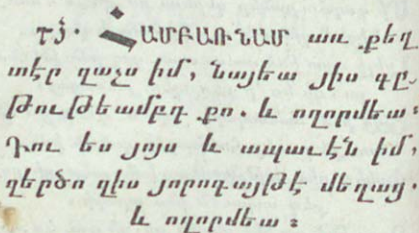 դձ. ՀԱՄԲԱՌՆԱՄ առ քեզ
տէր զաչս իմ, նայեա յիս գը֊
թութեամբդ քո. և ողորմեա։
Դու ես յոյս և ապաւէն իմ,
զերծո զիս յորոգայթէ մեղաց.
և ողորմեա։